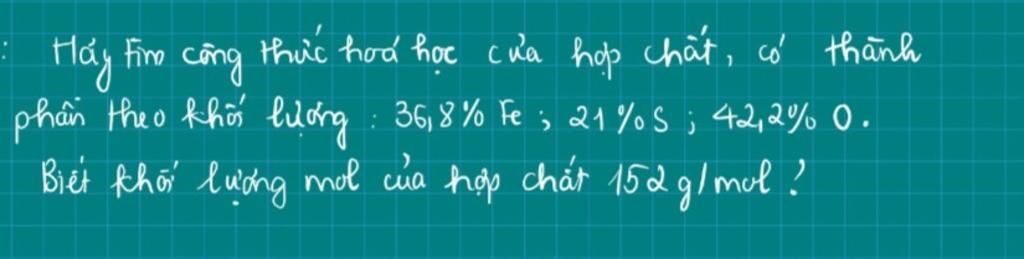 : Hãy tìm công thức hoá học của hợp chất, có thành
phần theo khối lượng : 36,8% Fe ; 21%S ; 42,2% O.
Biết khối lượng mol của hợp chất 152 g/mol ?